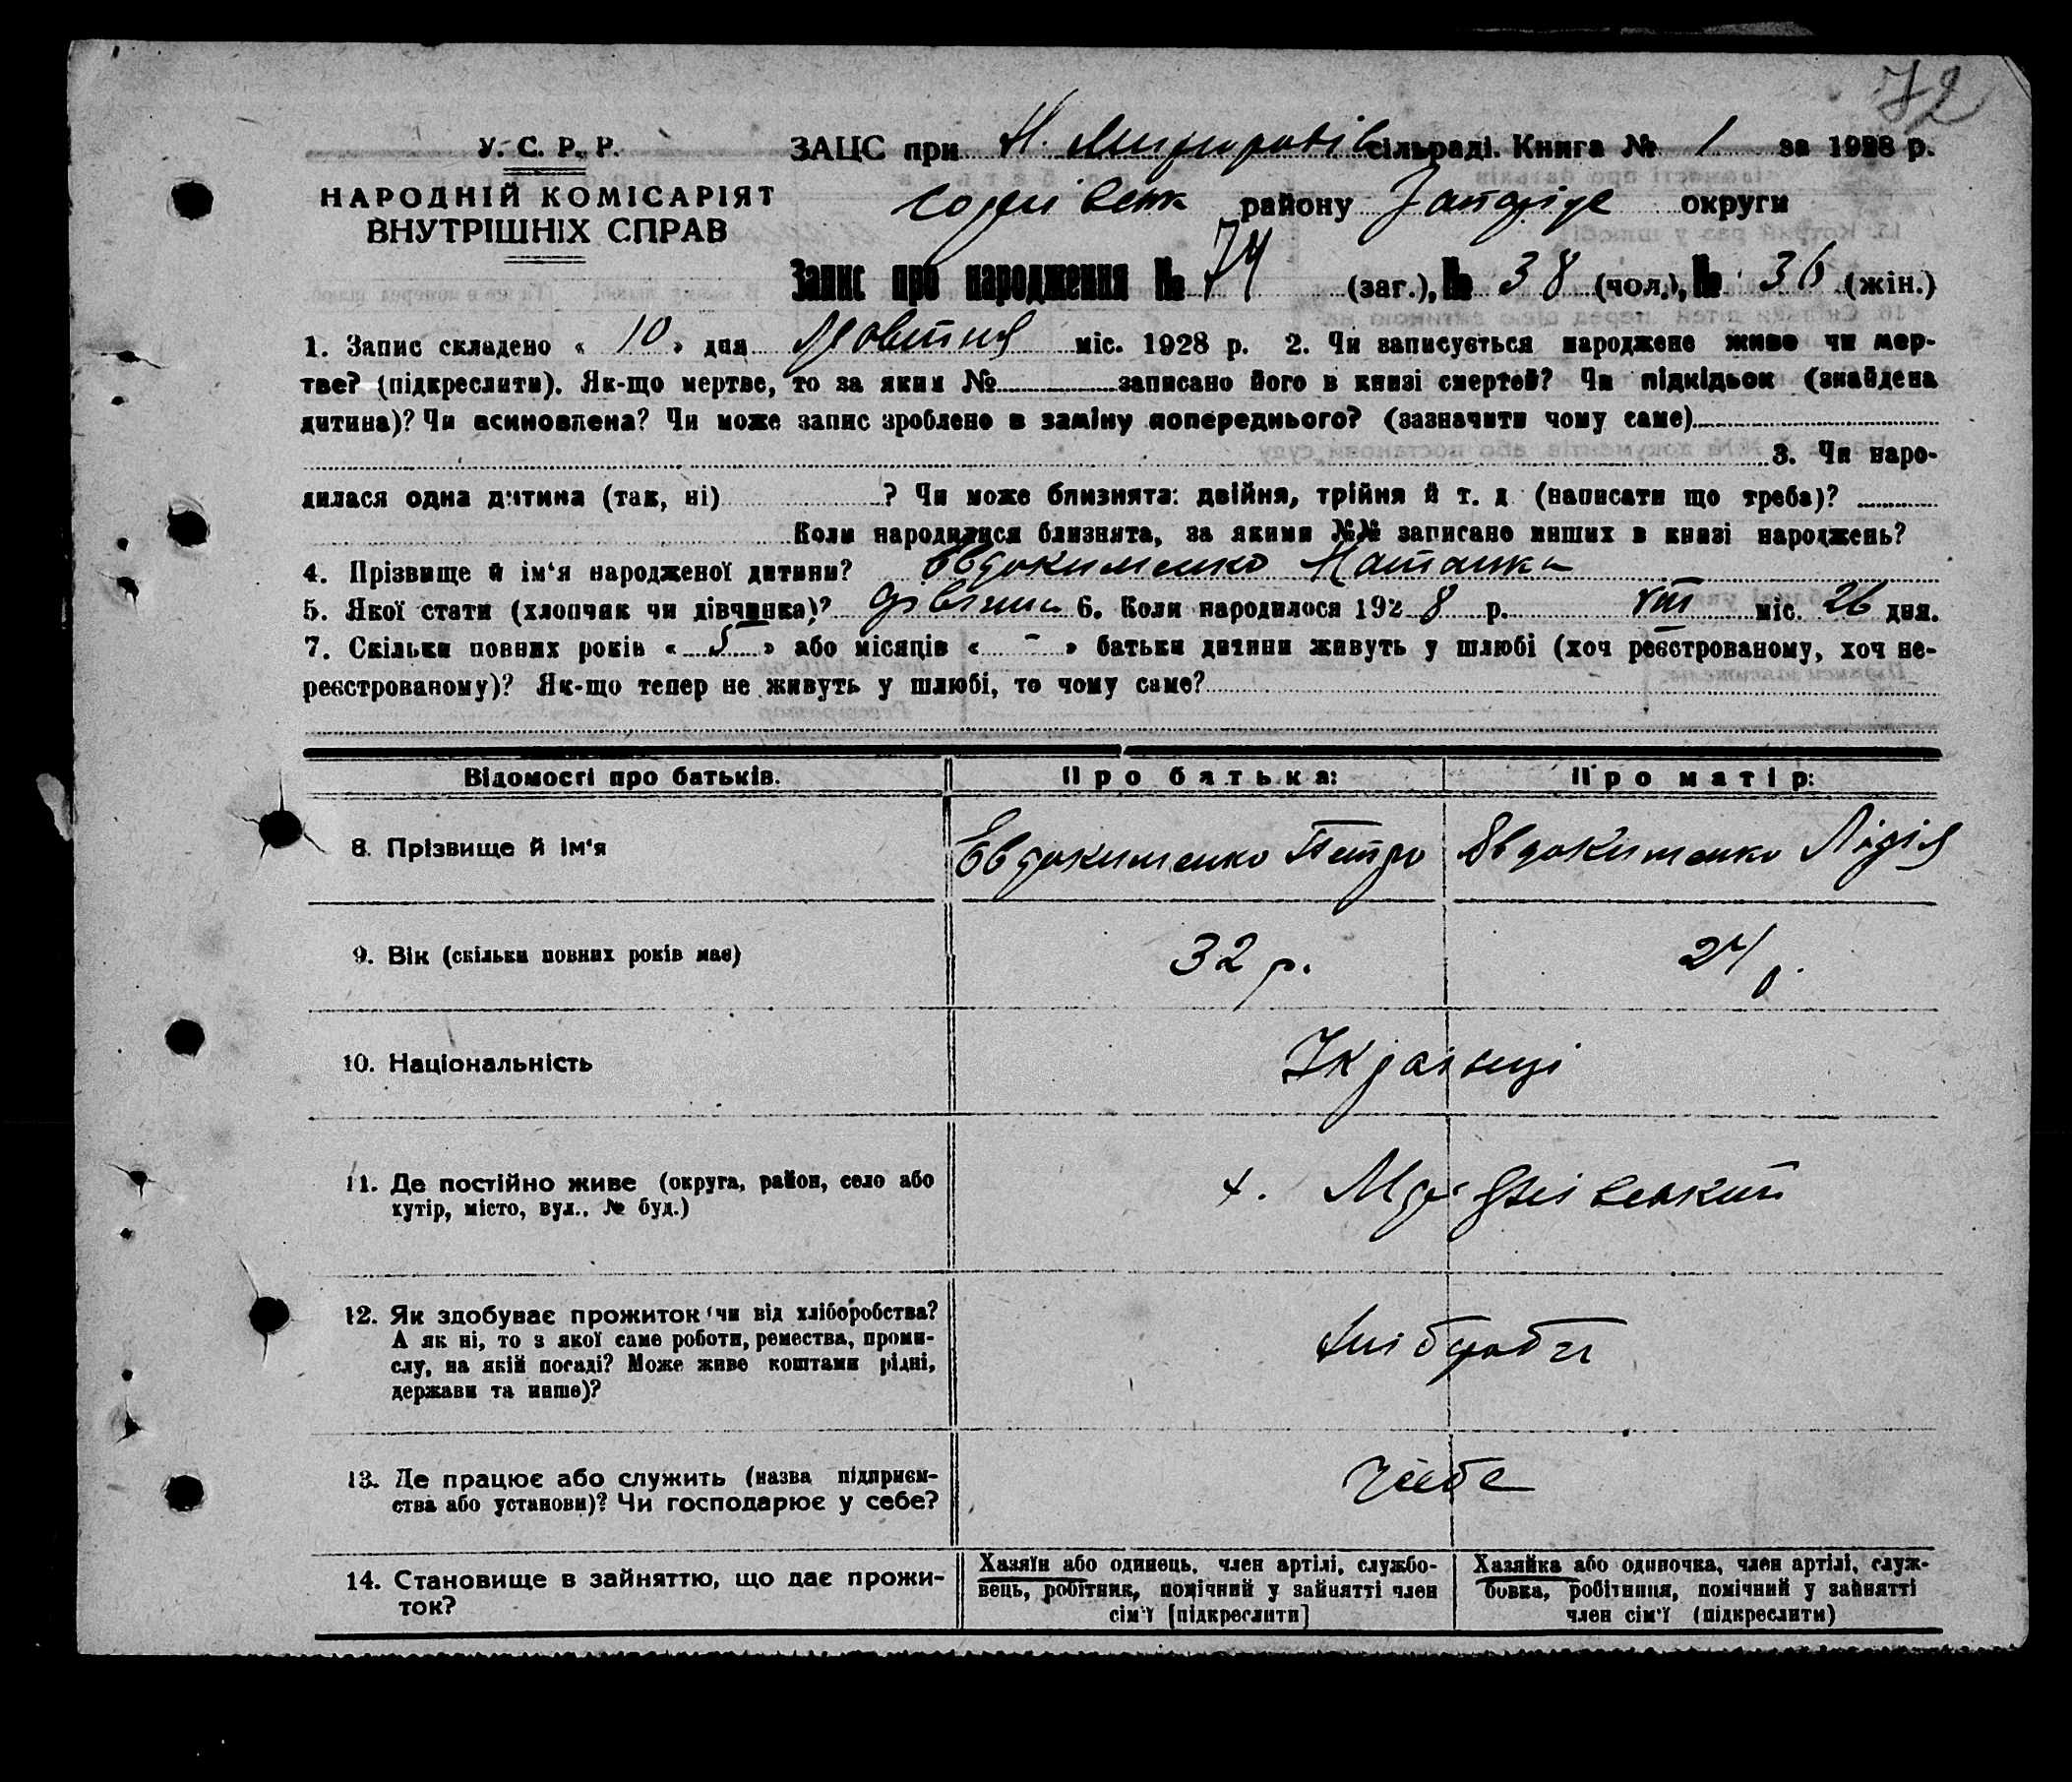 72
У. С. Р. Р.
НАРОДНІЙ КОМІСАРІЯТ
ВНУТРІШНІХ СПРАВ
ЗАЦС при Н. сільраді. Книга № 1 за 1928 р.
району округи
Запис про народження № 74 (заг.), № 38 (чол.), № 36 (жін.)
1. Запис складено « 10 » дня Жовтня міс. 1928 р. 2. Чи записується народжене живе чи мер-
тве? (підкреслити). Як-що мертве, то за яким № записано його в книзі смертей? Чи підкідьок (знайдена
дитина)? Чи всиновлена? Чи може запис зроблено в заміну попереднього? (зазначити чому саме)
3. Чи наро-
дилася одна дитина (так, ні) ? Чи може близнята: двійня, трійня й т. д (написати що треба)?
Коли народилися близнята, за якими №№ записано инших в книзі народжень?
4. Прізвище й ім‘я народженої дитини? Євдокименко Наталка
5. Якої стати (хлопчик чи дівчинка)? дівчина 6. Коли народилося 1928 р. VIII міс. 26 дня.
7. Скільки повних років « 5 » або місяців « - » батьки дитини живуть у шлюбі (хоч реєстрованому, хоч не-
реєстрованому)? Як-що тепер не живуть у шлюбі, то чому саме?
Відомості про батьків. Про батька: Про матір:
8. Прізвище й ім‘я Євдокименко Петро Євдокименко Лідія
9. Вік (скільки повних років має) 32 р. 24 р.
10. Національність Українці
11. Де постійно живе (округа, район, село або
кутір, місто, вул., № буд.) х.
12. Як здобуває прожиток чи від хліборобства?
А як ні, то з якої саме роботи, ремества, проми-
слу, на якій посаді? Може живе коштами рідні,
держави та инше)? Хлібороби
13. Де працює або служить (назва підприєм-
ства або установи)? Чи господарює у себе? У себе
14. Становище в зайняттю, що дає прожи-
ток?
Хазяїн або одинець, член артілі, службо-
вець, робітник, помічний у зайнятті член
сім‘ї [підкреслити]
Хазяйка або одиночка, член артілі, служ-
бовка, робітниця, помічний у зайнятті
член сім‘ї (підкреслити)